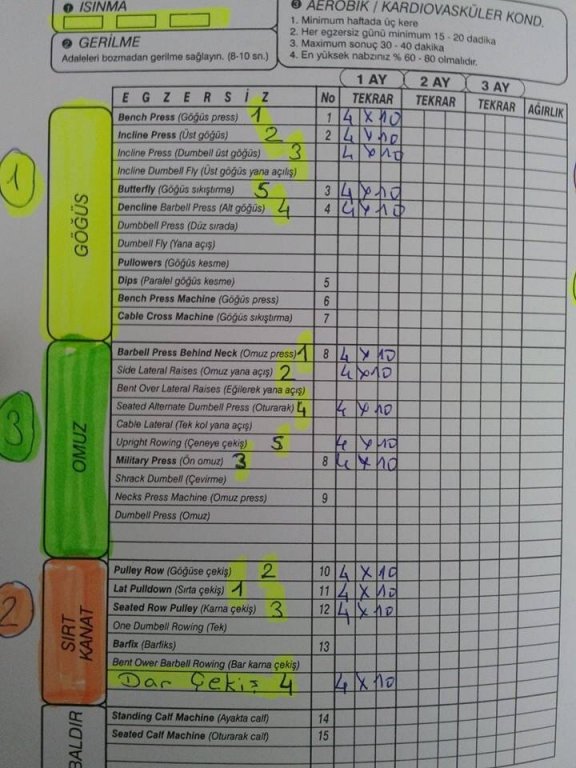 ❶ ISINMA
❷ GERİLME
Adaleleri bozmadan gerilme sağlayın. (8-10 sn.)
❸ AEROBİK / KARDİOVASKÜLER KOND.
1. Minimum haftada üç kere
2. Her egzersiz günü minimum 15 - 20 dadika
3. Maximum sonuç 30 - 40 dakika
4. En yüksek nabzınız % 60 - 80 olmalıdır.
1 AY 2 AY 3 AY
E G Z E R S İ Z No TEKRAR TEKRAR TEKRAR AĞIRLIK
1 GÖĞÜS
Bench Press (Göğüs press) 1 1 4 x 10
Incline Press (Üst göğüs) 2 2 4 x 10
Incline Press (Dumbell üst göğüs) 3 4 x 10
Incline Dumbell Fly (Üst göğüs yana açılış)
Butterfly (Göğüs sıkıştırma) 5 3 4 x 10
Dencline Barbell Press (Alt göğüs) 4 4 4 x 10
Dumbbell Press (Düz sırada)
Dumbell Fly (Yana açış)
Pullowers (Göğüs kesme)
Dips (Paralel göğüs kesme) 5
Bench Press Machine (Göğüs press) 6
Cable Cross Machine (Göğüs sıkıştırma) 7
3 OMUZ
Barbell Press Behind Neck (Omuz press) 1 8 4 x 10
Side Lateral Raises (Omuz yana açış) 2 4 x 10
Bent Over Lateral Raises (Eğilerek yana açış)
Seated Alternate Dumbell Press (Oturarak) 4 4 x 10
Cable Lateral (Tek kol yana açış)
Upright Rowing (Çeneye çekiş) 5 4 x 10
Military Press (Ön omuz) 3 8 4 x 10
Shrack Dumbell (Çevirme)
Necks Press Machine (Omuz press) 9
Dumbell Press (Omuz)
2 SIRT KANAT
Pulley Row (Göğüse çekiş) 2 10 4 x 10
Lat Pulldown (Sırta çekiş) 1 11 4 x 10
Seated Row Pulley (Karna çekiş) 3 12 4 x 10
One Dumbell Rowing (Tek)
Barfix (Barfiks) 13
Bent Ower Barbell Rowing (Bar karna çekiş)
Dar Çekiş 4 4 x 10
BALDIR
Standing Calf Machine (Ayakta calf) 14
Seated Calf Machine (Oturarak calf) 15